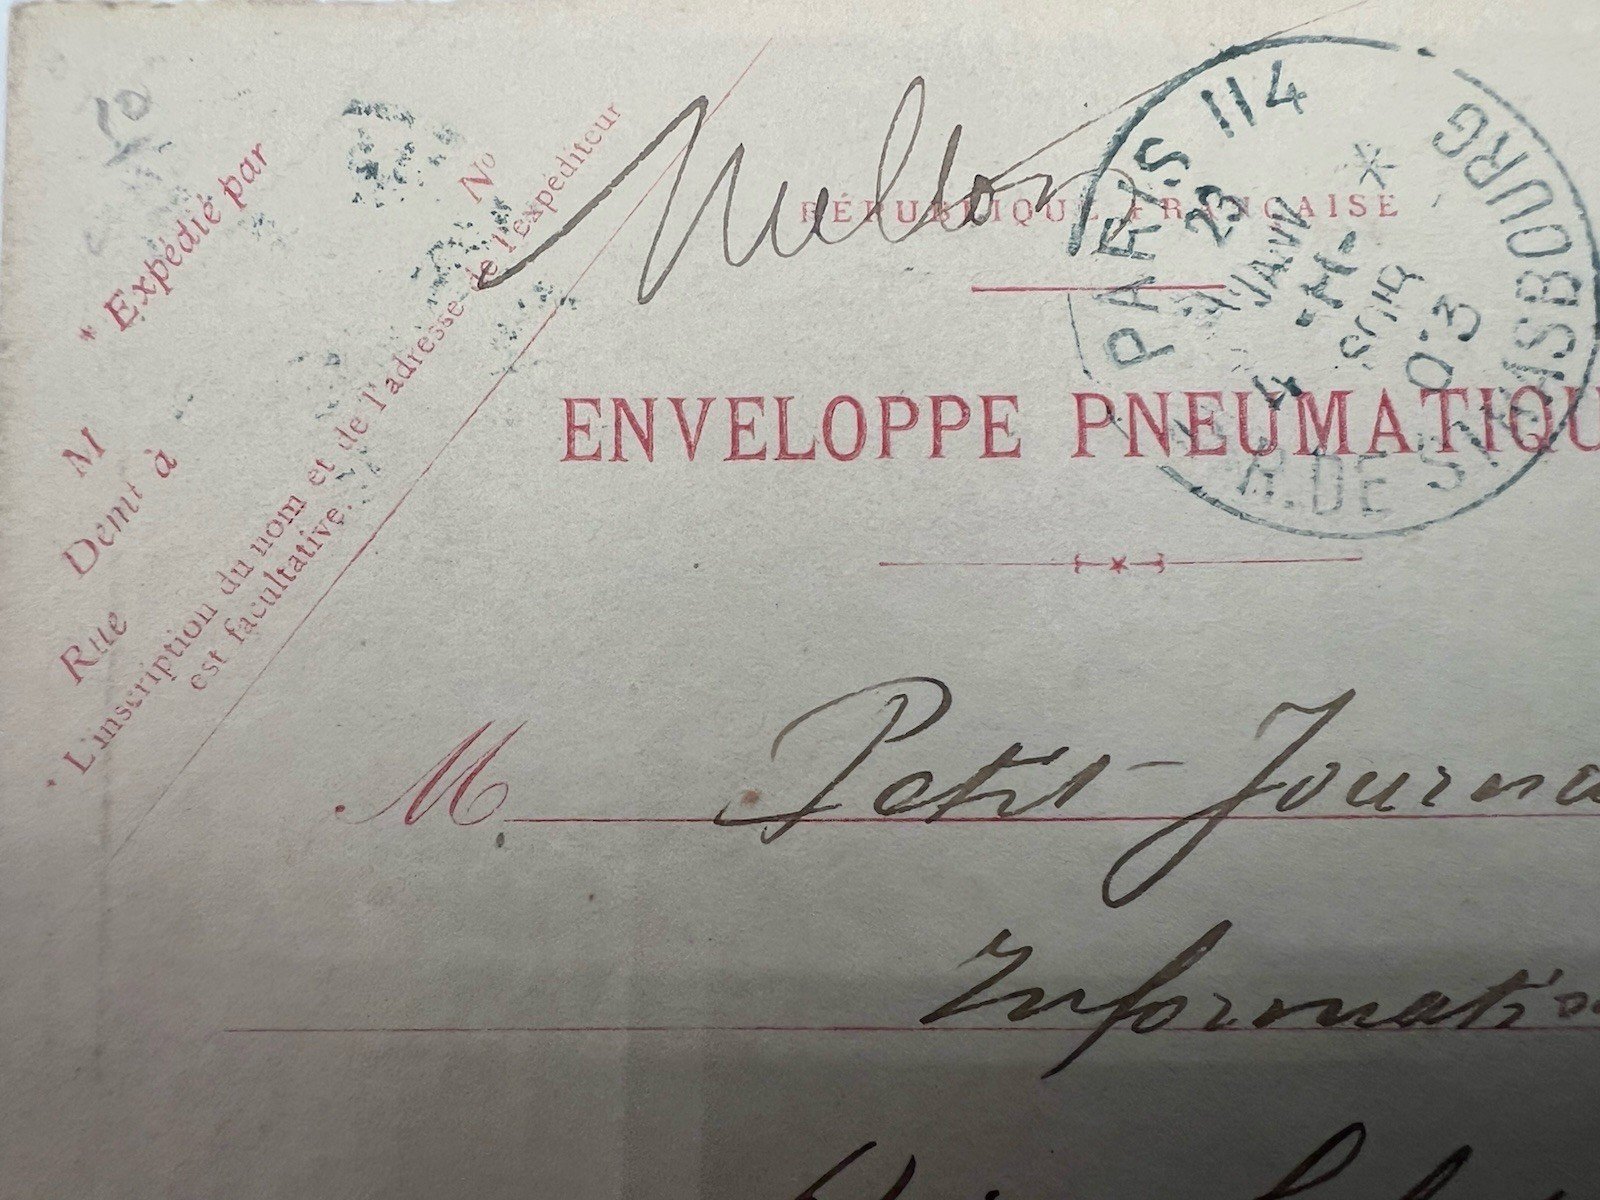 10
* Expédié par
M
Demt à
No
Rue
* L'inscription du nom et de l'adresse de l'expéditeur
est facultative.
RÉPUBLIQUE FRANÇAISE
PARIS 114 * R. DE STRASBOURG
23
JANV
03
ENVELOPPE PNEUMATIQU
M. Petit Journa
Informatio